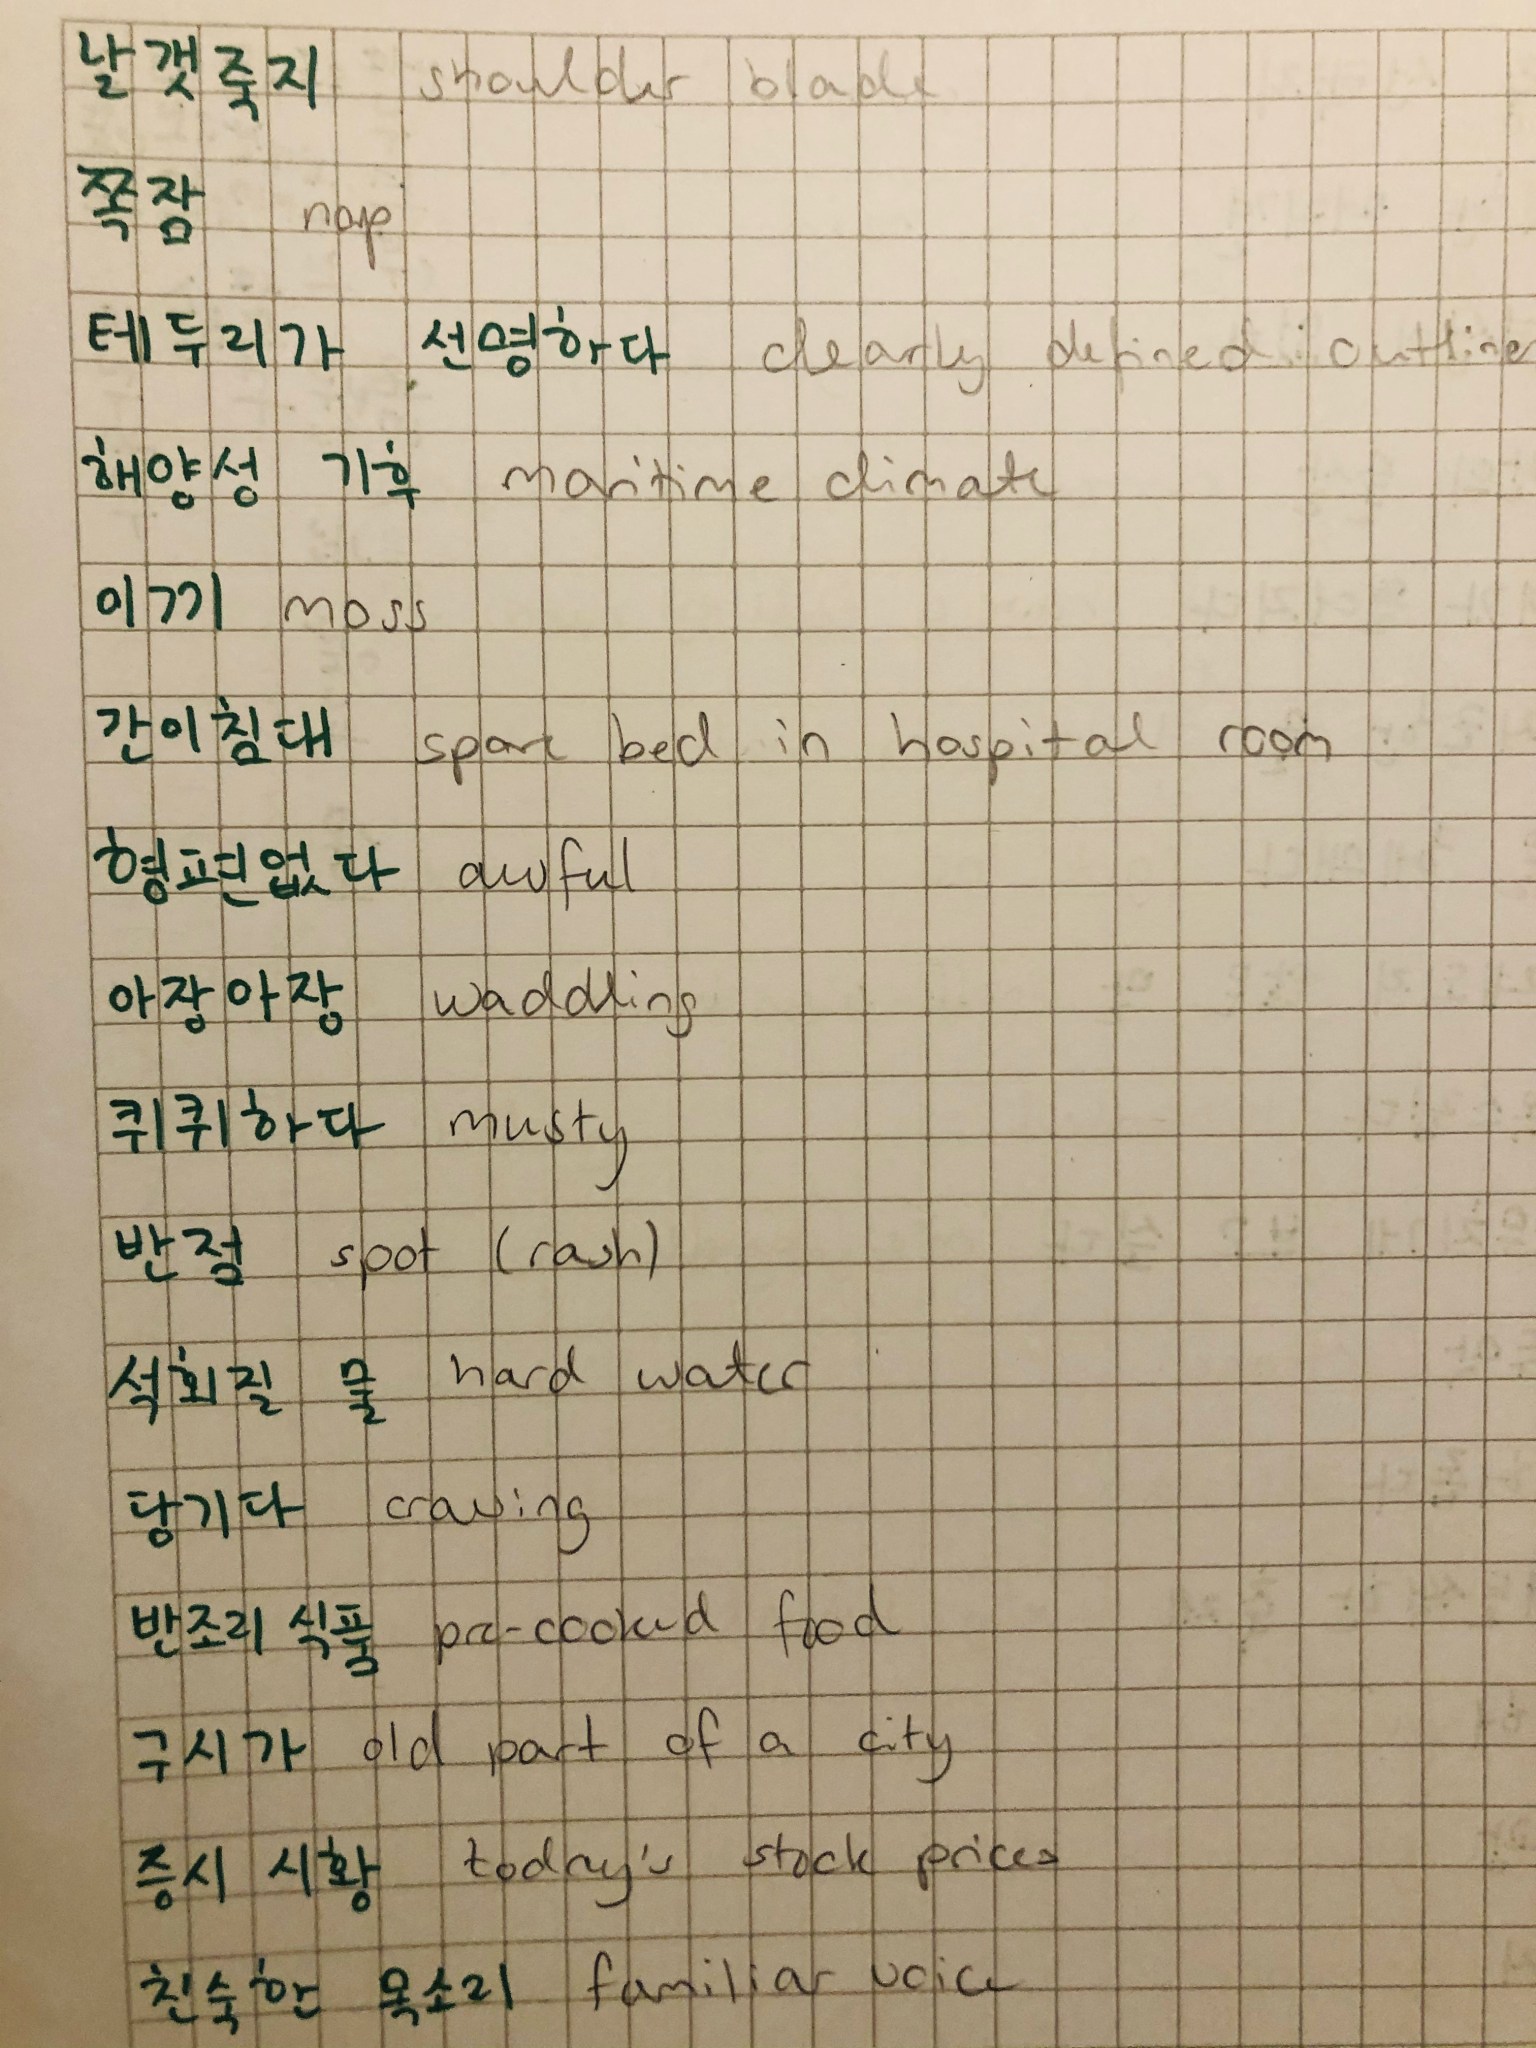 날갯죽지 shoulder blade
쪽잠 nap
테두리가 선명하다 clearly defined outline
해양성 기후 maritime climate
이끼 moss
간이침대 spare bed in hospital room
형편없다 awful
아장아장 waddling
퀴퀴하다 musty
반점 spot (rash)
석회질 물 hard water
당기다 craving
반조리 식품 pre-cooked food
구시가 old part of a city
증시 시황 today's stock prices
친숙한 목소리 familiar voice